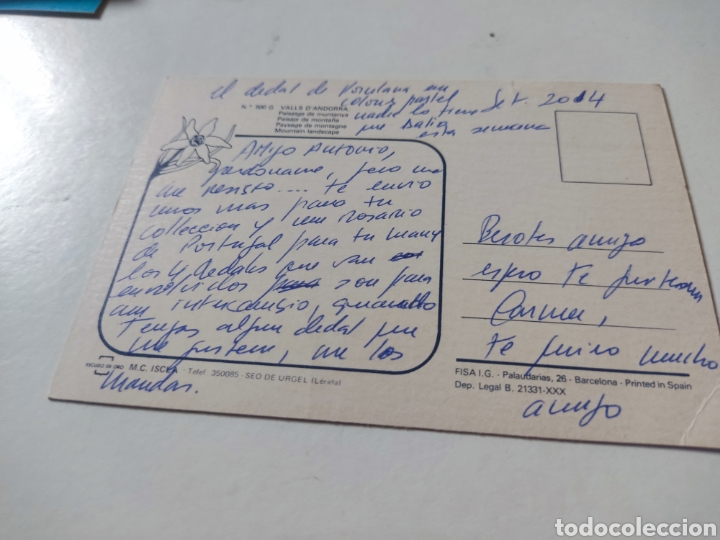 el dedal de Porcelana en
colores pastel
nadie lo tiene
que Salió
esta semana
Set. 2014
N.° 690 G VALLS D'ANDORRA
Paisatge de muntanya
Paisaje de montaña
Paysage de montagne
Mountain landscape
Amigo Antonio,
perdoname, pero no
me resisto.... te envio
unos mas para tu
colleccion y un rosario
de Portugal para tu mamy
los 4 dedales que van
envolvidos son para
un intercambio, quando
tengas algun dedal que
me gustem, me los
mandas.
Besotes amigo
espero te gustem
Carmen,
te quiero mucho
amigo
ESCUDO DE ORO M.C. ISCLA Telef. 350085 - SEO DE URGEL (Lérida)
FISA I.G. - Palaudarias, 26 - Barcelona - Printed in Spain
Dep. Legal B. 21331-XXX
todocoleccion